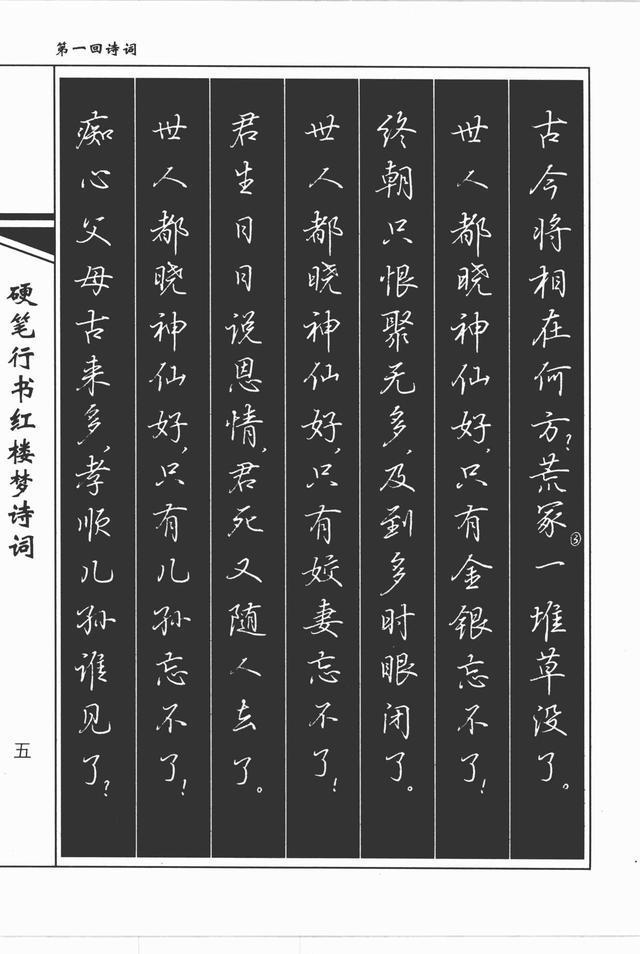 第一回诗词
古今将相在何方？荒冢③一堆草没了。
世人都晓神仙好，只有金银忘不了！
终朝只恨聚无多，及到多时眼闭了。
世人都晓神仙好，只有姣妻忘不了！
君生日日说恩情，君死又随人去了。
世人都晓神仙好，只有儿孙忘不了！
痴心父母古来多，孝顺儿孙谁见了？
硬笔行书红楼梦诗词
五